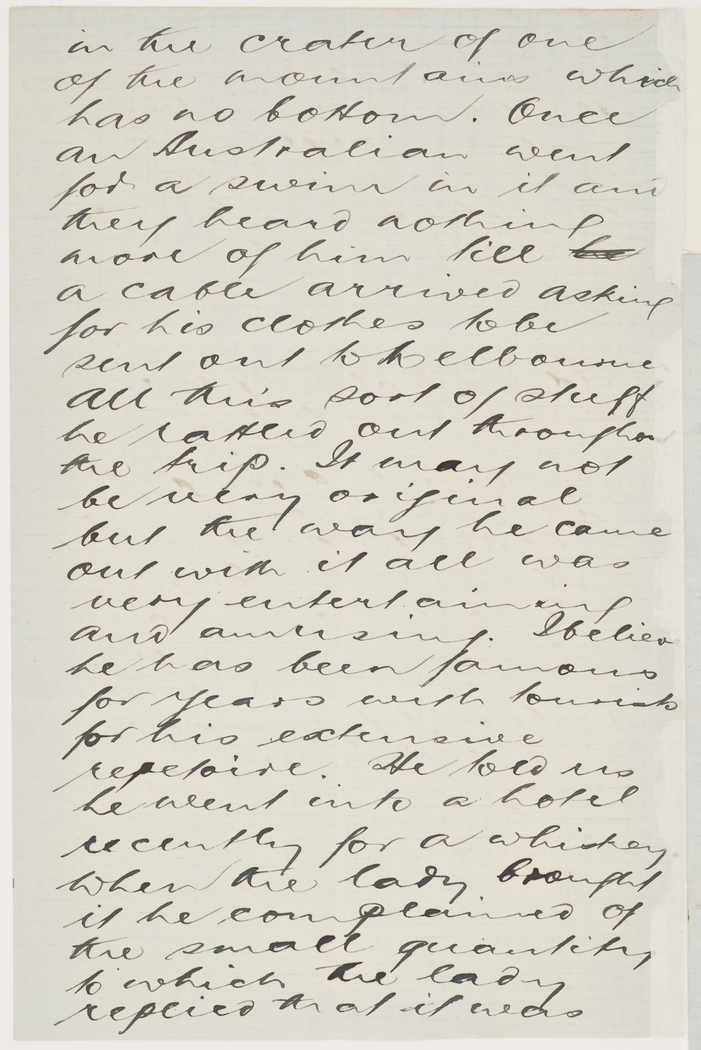 in the crater of one
of the mountains which
has no bottom. Once
an Australian went
for a swim in it and
they heard nothing
more of him till he
a cable arrived asking
for his clothes to be
sent out to Melbourne
All this sort of stuff
he rattled out throughou
the trip. It may not
be very original
but the way he came
out with it all was
very entertaining
and amusing. I believ
he has been famous
for years with tourists
for his extensive
repetoire. He told us
he went into a hotel
recently for a whiskey
when the lady brought
it he complained of
the small quantity
to which the lady
replied that it was